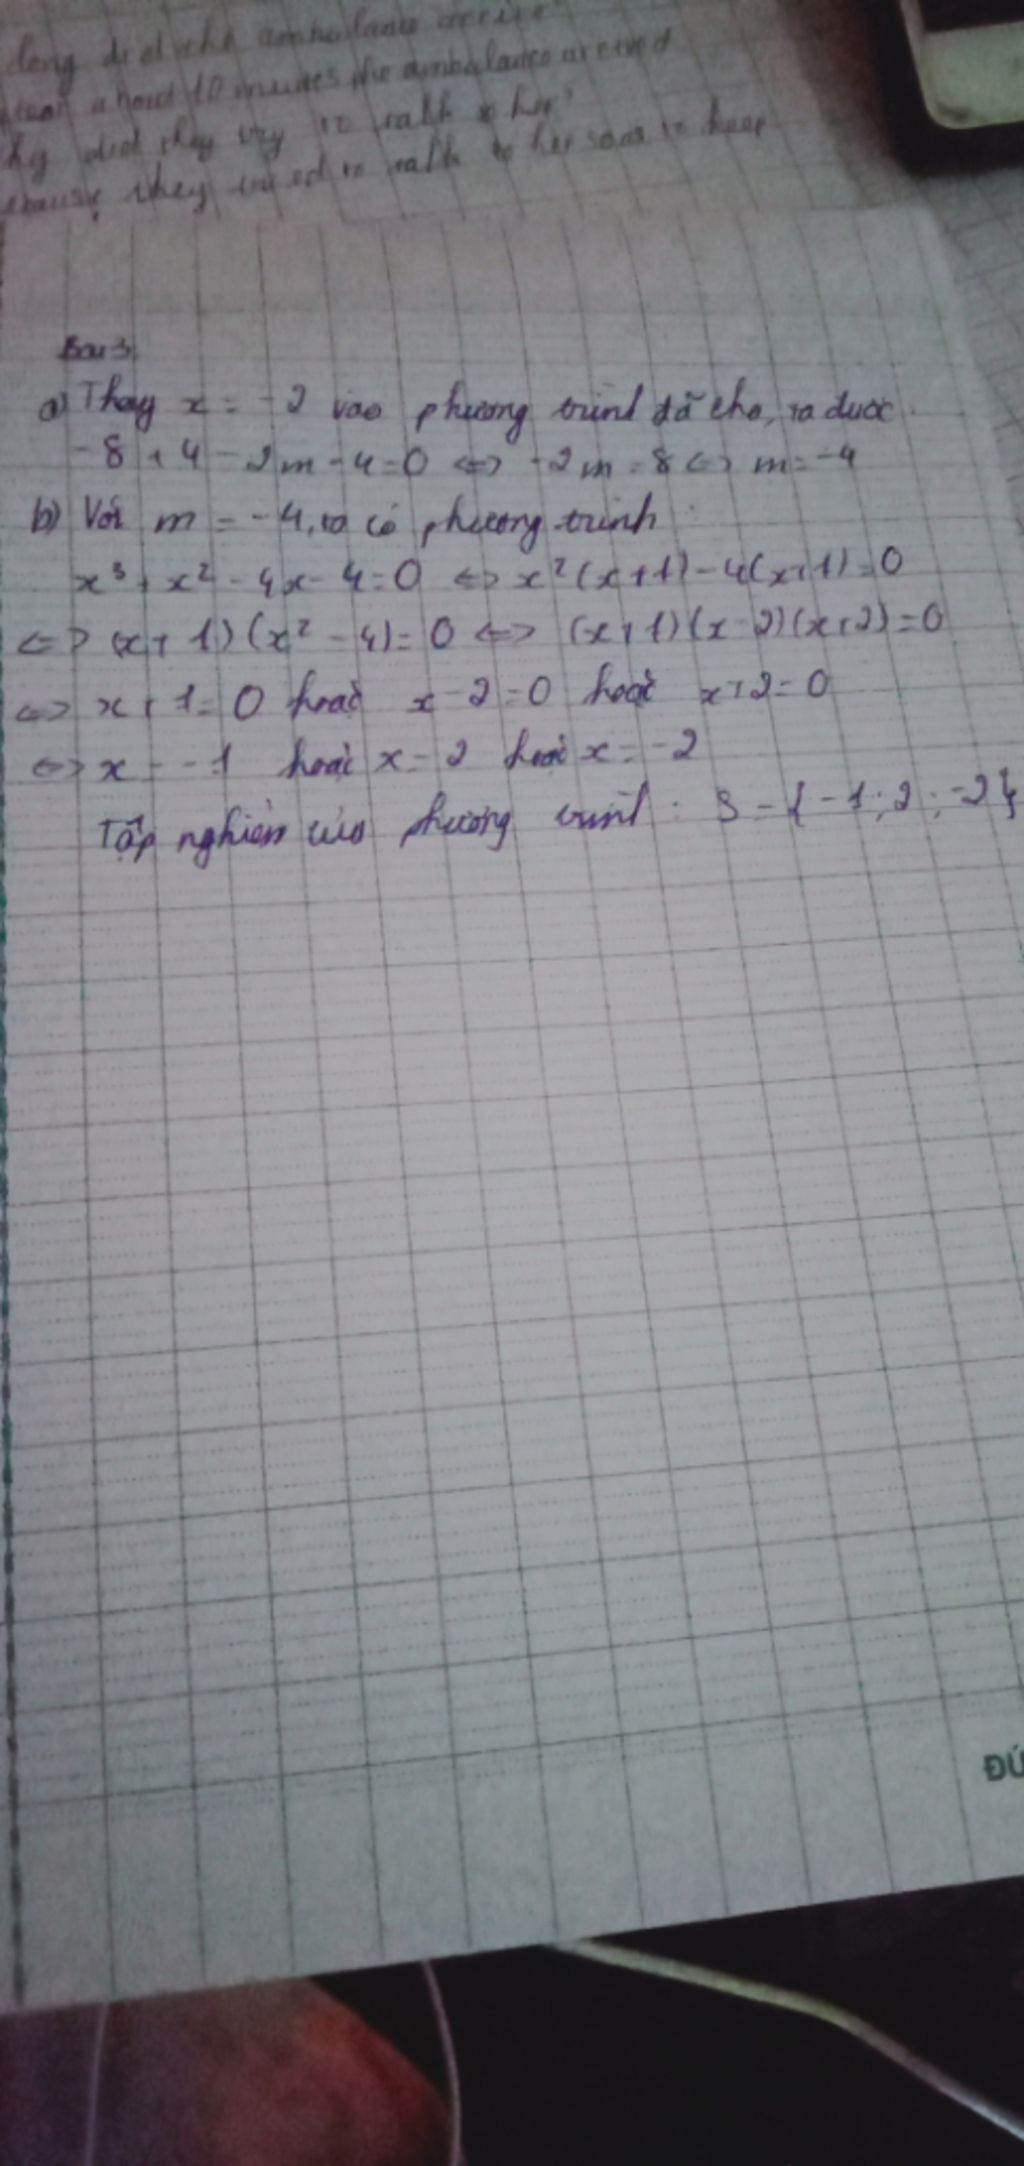 long did the ambulance arrive
about 10 minutes the ambulance arrived
did they try to talk to her?
they tried to talk to her so as to keep
Bài 3
a) Thay x = -2 vào phương trình đã cho, ta được
-8 + 4 - 2m - 4 = 0 <=> -2m = 8 <=> m = -4
b) Với m = -4, ta có phương trình:
x³ + x² - 4x - 4 = 0 <=> x²(x+1) - 4(x+1) = 0
<=> (x+1)(x² - 4) = 0 <=> (x+1)(x-2)(x+2) = 0
<=> x + 1 = 0 hoặc x - 2 = 0 hoặc x + 2 = 0
<=> x = -1 hoặc x = 2 hoặc x = -2
Tập nghiệm của phương trình: S = {-1; 2; -2}
ĐÚ